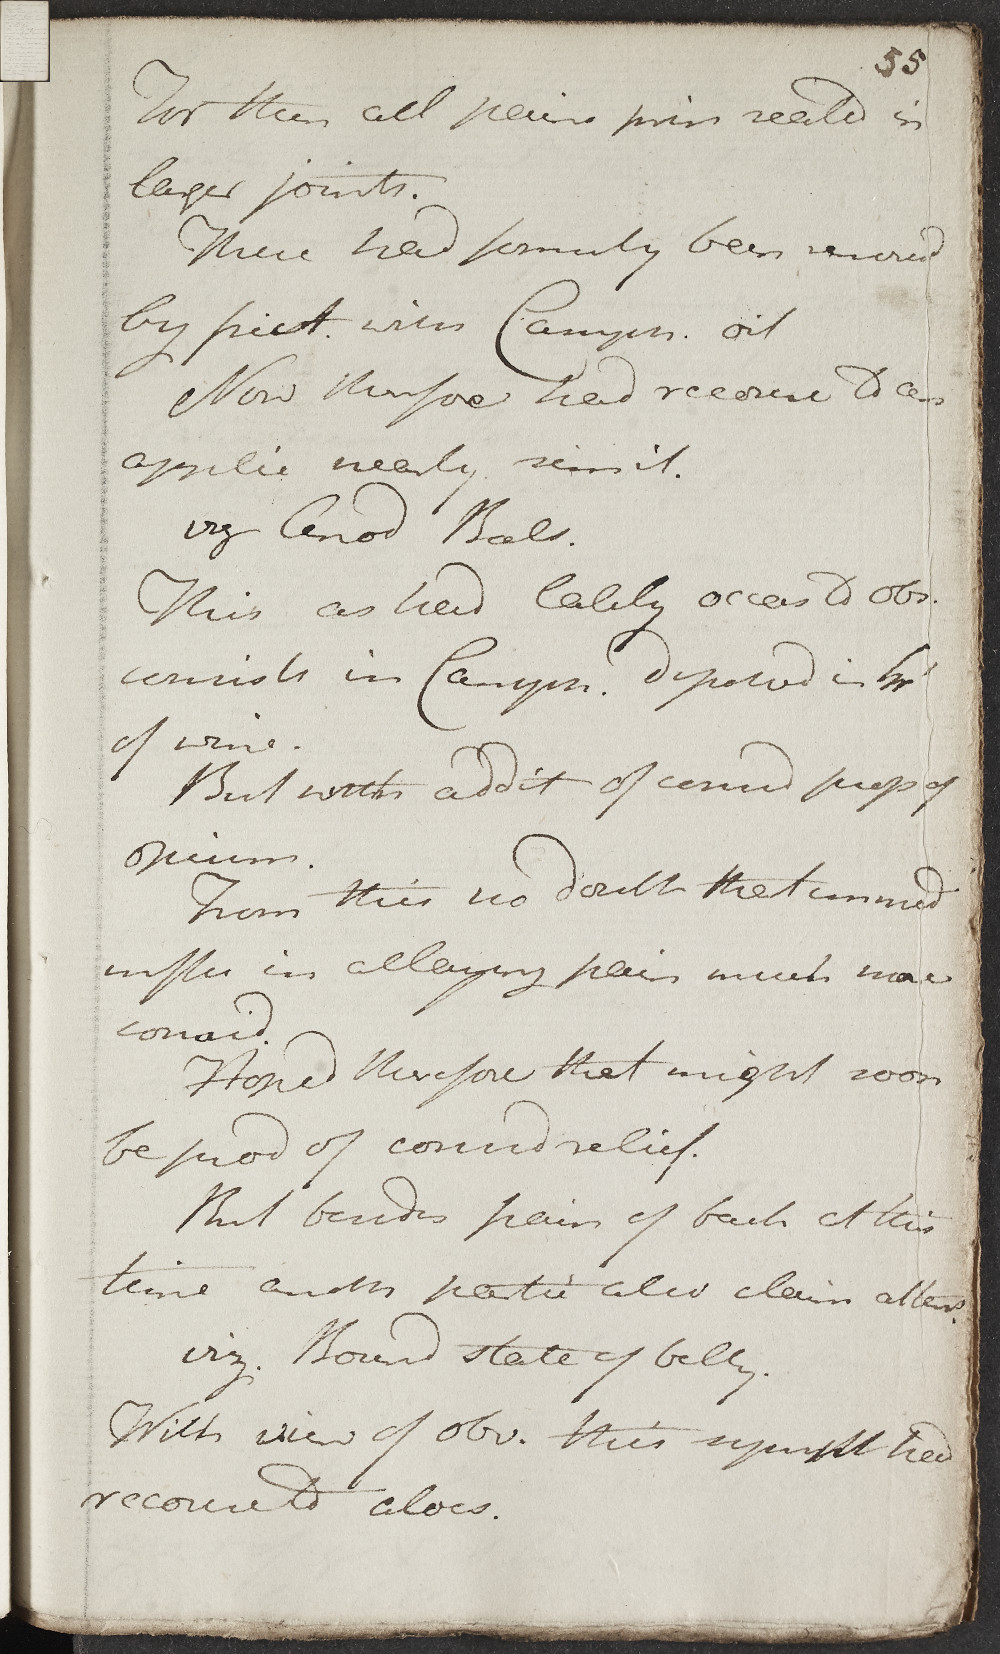 55
For then all pains prin seated in
larger joints.
These had formerly been removed
by frict. with Camph. oil
Now therefore had recourse to an
applic nearly simil.
viz Anod Bals.
This as had lately occas to obs.
consists in Camph. dissolved in Spt
of wine.
But with addit of consid prop of
opium.
From this no doubt that immed
in allaying pain much more
consid.
Hoped therefore that might soon
be prod of consid relief.
But besides pain of back at this
time anoth partic also claim atten.
viz. Bound state of belly.
With view of obv. this sympt had
recourse to aloes.